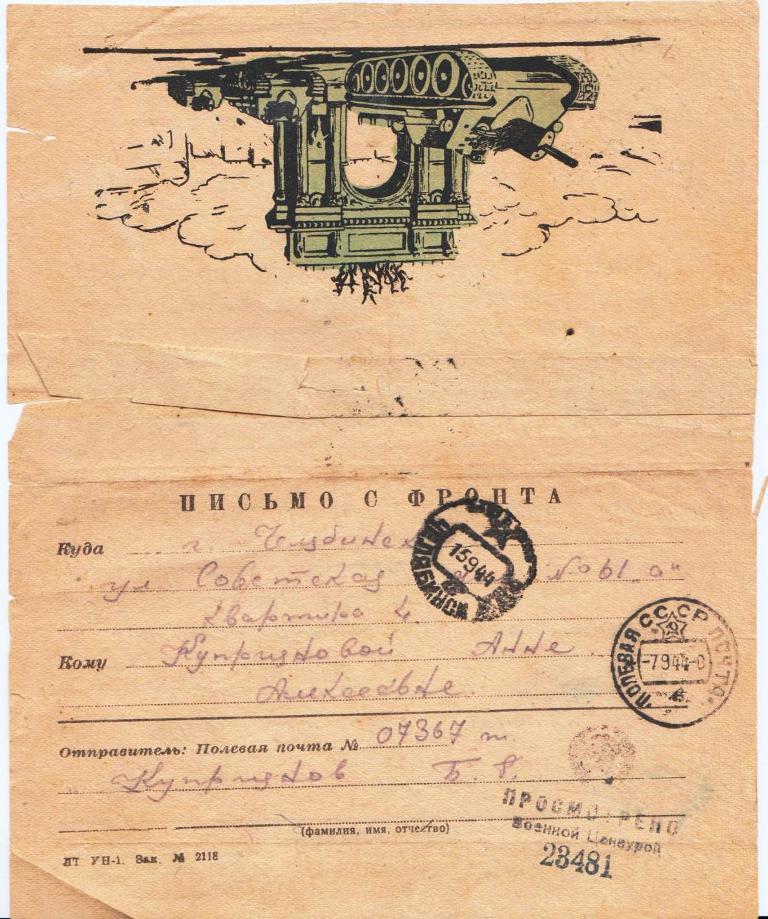 ПИСЬМО С ФРОНТА
Куда г. Челябинск
ул Советская д. № 61 "а"
квартира 4.
Кому Куприяновой Анне
Алексеевне
Отправитель: Полевая почта № 07367 т.
Куприянов Б. Г.
(фамилия, имя, отчество)
ЛТ УН-1. Зак. № 2118
ЧЕЛЯБИНСК
15944
ПОЛЕВАЯ ПОЧТА
СССР
-7944-0
ПРОСМОТРЕНО
Военной Цензурой
23481